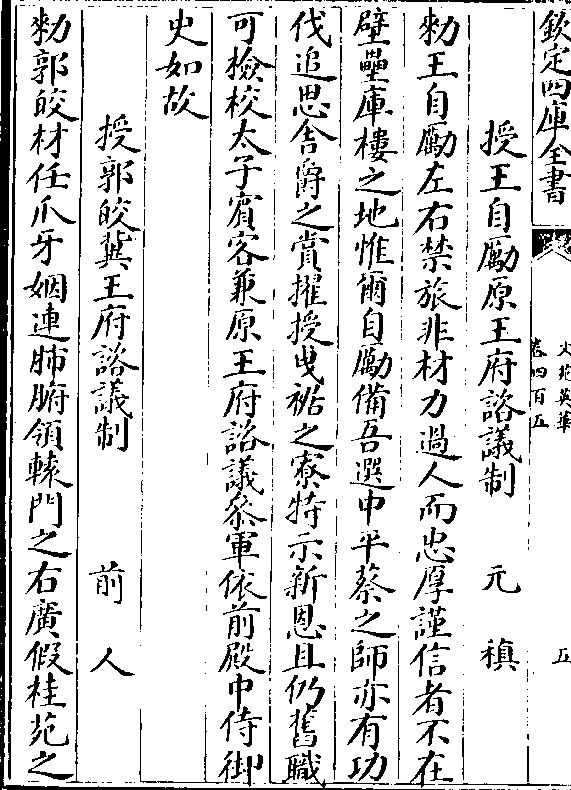 欽定四庫全書
文苑英華
卷四百五
五
授王自勵原王府諮議制 元稹
勑王自勵左右禁旅非材力過人而忠厚謹信者不在
壁壘庫樓之地惟爾自勵備吾選中平蔡之師亦有功
伐追思舍爵之賞擢授曵裾之寮特示新恩且仍舊職
可檢校太子賓客兼原王府諮議叅軍依前殿中侍御
史如故
授郭皎冀王府諮議制 前人
勑郭皎材任爪牙姻連肺腑領轅門之右廣假桂苑之